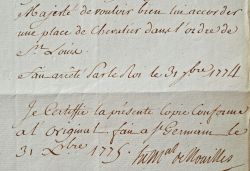 Majesté de vouloir bien lui accorder
une place de Chevalier dans l'ordre de
St. Louis
fait arrêté par le Roi le 31 xbre 1774
Je Certifie la présente Copie Conforme
à l'original fait a St Germain le
31 xbre 1775. de Noailles